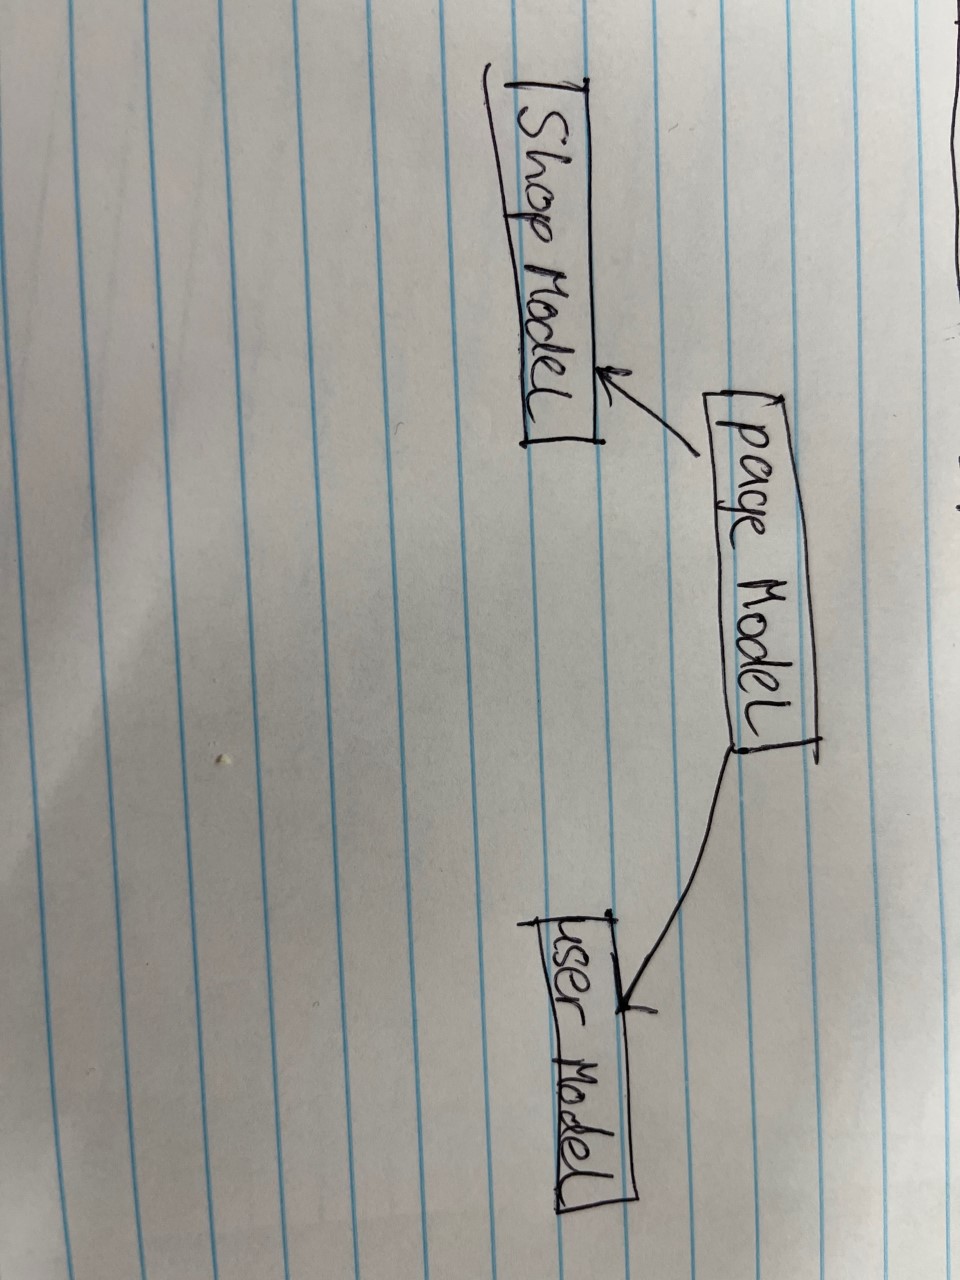 page Model
Shop Model
user Model